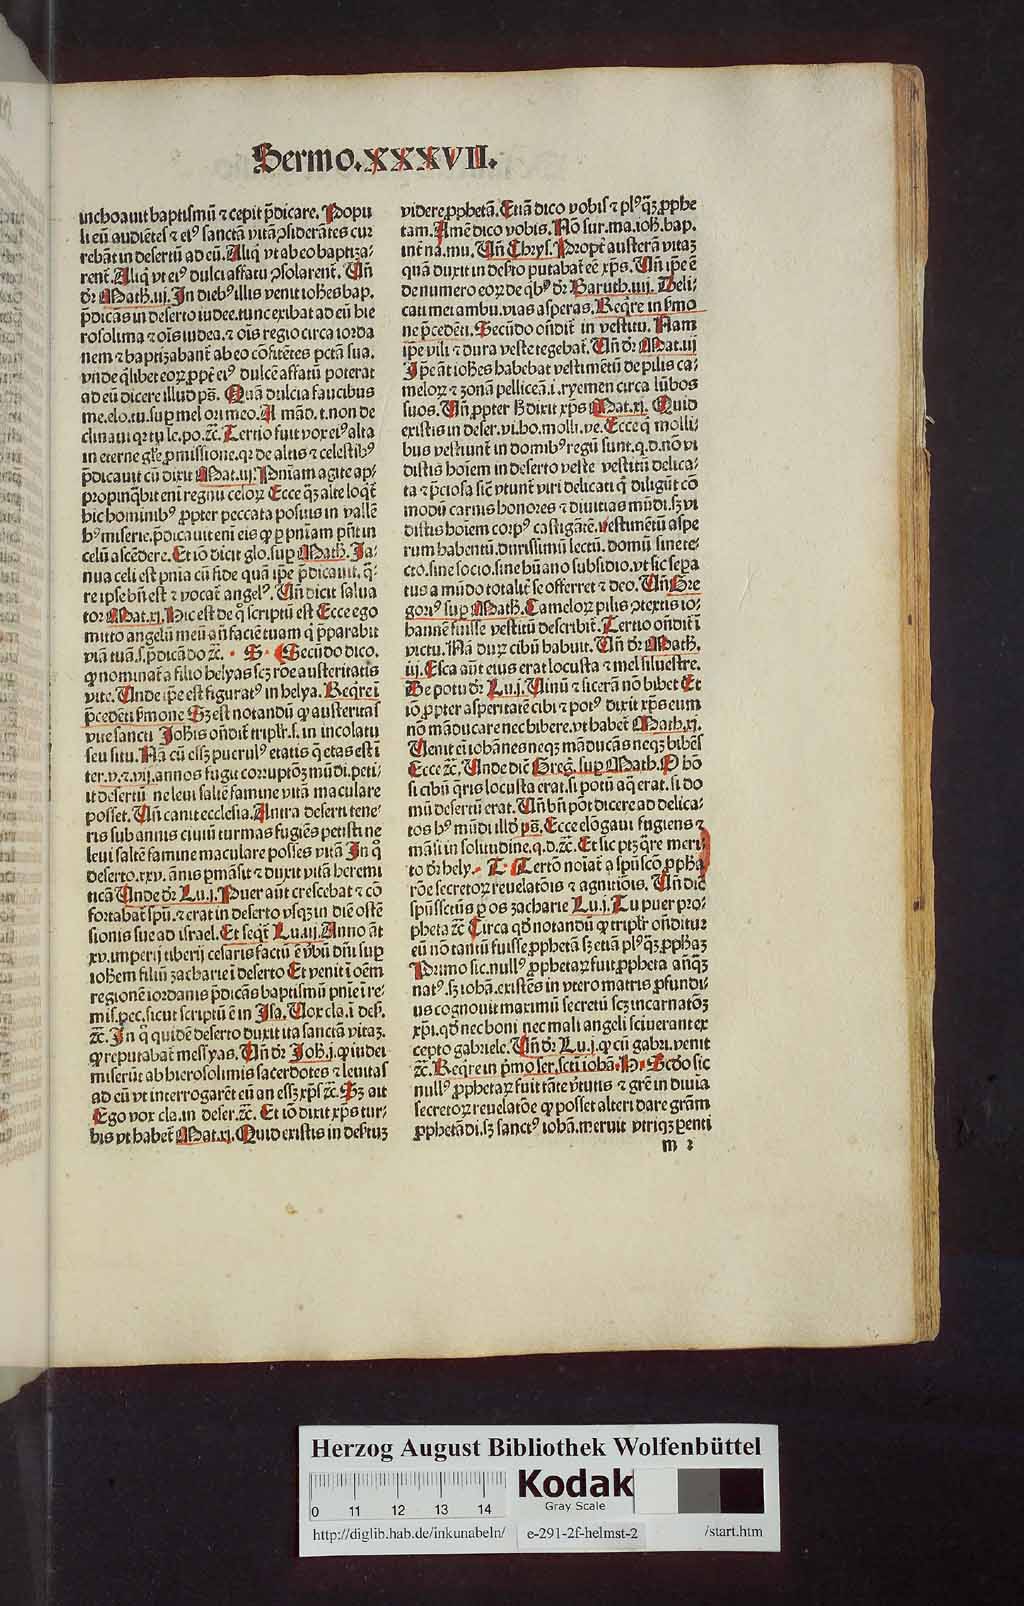 Sermo.XXXVII.
inchoauit baptismū ⁊ cepit p̄dicare. Popu
li eū audiētes ⁊ eiꝰ sanctā vitā ꝯsiderātes cur
rebāt in desertū ad eū. Aliq̄ vt ab eo baptiza-
rent̄. Aliq̄ vt eiꝰ dulci affatu ꝯsolarent̄. Un̄
dr̄ Math. iij. In diebꝰ illis venit iohēs bap.
p̄dicās in deserto iudee. tunc exibat ad eū hie
rosolima ⁊ oīs iudea. ⁊ oīs regio circa iorda
nem ⁊ baptizabant̄ ab eo cōfitētes pctā sua.
vnde q̄libet eoꝝ ꝓpt̄ eiꝰ dulcē affatū poterat
ad eū dicere illud ps̄. Quā dulcia faucibus
me. elo. tu. sup mel ori meo. A mād. t. non de
clinaui qꝛ tu le. po. ⁊c̄. Tertio fuit vox eiꝰ alta
in eterne gl̄ie ꝓmissione. qꝛ de altis ⁊ celestibꝰ
p̄dicauit cū dixit Mat. iij. Pniam agite ap-
propinq̄bit eni regnū celoꝝ Ecce q̄ꝫ alte loqt̄
hic hominibꝰ ꝓpter peccata positis in valle
hꝰ miserie. p̄dicauit eni eis ꝙ ꝑ pniam pn̄t in
celū ascēdere. Et iō dicit glo. sup Math. Ja-
nua celi est pnia cū fide quā ip̄e p̄dicauit. q̄-
re ip̄e bn̄ est ⁊ vocat̄ angelꝰ. Un̄ dicit salua
tor Mat. xj. Hic est de q̄ scriptū est Ecce ego
mitto angelū meū an̄ faciē tuam q̄ p̄parabit
viā tuā. s. p̄dicādo ⁊c̄. · S · Secūdo dico.
ꝙ nominat̄ a filio helyas scꝫ rōe austeritatis
vite. Unde ip̄e est figuratꝰ in helya. Reqre i
p̄cedēti ẜmone Sꝫ est notandū ꝙ austeritas
vite sancti Johīs ondit̄ triplr̄. s. in incolatu
seu situ. Nā cū essꝫ puerulꝰ etatis q̄ etas est i
ter. v. ⁊. vij. annos fugit corruptōꝫ mūdi. peti-
it desertū ne leui saltē famine vitā maculare
posset. Un̄ canit ecclesia. Antra deserti tene-
ris sub annis ciuiū turmas fugiēs petisti ne
leui saltē famine maculare posses vitā In q̄
deserto. xxv. ānis p̄māsit ⁊ duxit vitā heremi
ticā Unde dr̄ Lu. j. Puer aūt crescebat ⁊ cō
fortabat̄ spū. ⁊ erat in deserto vsqꝫ in diē oste
sionis sue ad israel. Et seqt̄ Lu. iij. Anno āt
xv. imperij tiberij cesaris factū ē ѵbū dn̄i sup
iohem filiū zacharie i deserto Et venit i oēm
regionē iordanis p̄dicās baptismū pnie i re-
mis. pec. sicut scriptū ē in Isa. Uox cla. i des̄.
⁊c̄. In q̄ quidē deserto duxit ita sanctā vitaꝫ.
ꝙ reputabat̄ messyas. Un̄ dr̄ Joh. j. ꝙ iudei
miserūt ab hierosolimis sacerdotes ⁊ leuitas
ad eū vt interrogarēt eū an essꝫ xp̄s ⁊c̄. Sꝫ ait
Ego vox cla. in deser. ⁊c̄. Et iō dixit xp̄s tur-
bis vt habet̄ Mat. xj. Quid existis in desertuꝫ
videre ꝓphetā. Etiā dico vobis ⁊ plꝰ q̄ꝫ ꝓphe
tam. Amē dico vobis. Nō sur. ma. ioh. bap.
int̄ na. mu. Un̄ Chrys. Propt̄ austerā vitaꝫ
quā duxit in deserto putabat̄ eē xp̄s. Un̄ ip̄e ē
de numero eoꝝ de q̄bꝰ dr̄ Baruth. iiij. Deli-
cati mei ambu. vias asperas. Reqre in ẜmo
ne p̄cedēti. Secūdo ondit̄ in vestitu. Nam
ip̄e vili ⁊ dura veste tegebat̄. Un̄ dr̄ Mat. iij
Ip̄e āt iohēs habebat vestimētū de pilis ca-
meloꝝ ⁊ zonā pelliceā. i. ryemen circa lūbos
suos. Un̄ ꝓpter h̄ dixit xp̄s Mat. xj. Quid
existis in deser. vi. ho. molli. ve. Ecce q̄ molli-
bus vestiunt̄ in domibꝰ regū sunt. q. d. nō vi
distis hoīem in deserto veste vestitū delica-
ta ⁊ p̄ciosa sic̄ vtunt̄ viri delicati q̄ diligūt cō
modū carnis honores ⁊ diuitias mūdi. sꝫ vi
distis hoīem corpꝰ castigātē. vestimētū aspe
rum habentē. durissimū lectū. domū sine te-
cto. sine socio. sine humano subsidio. vt sic sepa
tus a mūdo totalit̄ se offerret ⁊ deo. Un̄ Gre
goriꝰ sup Math. Cameloꝝ pilis ꝯtextis io-
hannē fuisse vestitū describit̄. Tertio ondit̄ i
victu. Nā duꝝ cibū habuit. Un̄ dr̄ Math.
iij. Esca aūt eius erat locusta ⁊ mel siluestre.
De potu dr̄ Lu. j. Uinū ⁊ sicerā nō bibet Et
iō ꝓpter asperitatē cibi ⁊ potꝰ dixit xp̄s eum
nō māducare nec bibere. vt habet̄ Math. xj.
Uenit eī iohānes neqꝫ māducās neqꝫ bibēs
Ecce ⁊c̄. Unde dicit Greg. sup Math. O ho
si cibū q̄ris locusta erat. si potū aq̄ erat. si do
mū desertū erat. Un̄ bn̄ pōt dicere ad delica-
tos hꝰ mūdi illd̄ ps̄. Ecce elōgaui fugiens ⁊
māsi in solitudine. q. d. ⁊c̄. Et sic ptꝫ qre meri
to dr̄ hely. · T · Tertō noiat̄ a spūscō ꝓpha
rōe secretoꝝ reuelatōis ⁊ agnitiōis. Un̄ dic̄
spūssctūs ꝑ os zacharie Lu. j. Tu puer pro-
pheta ⁊c̄ Circa qd̄ notandū ꝙ triplr̄ onditur
eū nō tantū fuisse ꝓphetā sꝫ etiā plꝰ q̄ꝫ ꝓphaꝫ
Primo sic. nullꝰ ꝓphetaꝝ fuit ꝓpheta anq̄ꝫ
natꝰ. sꝫ iohā. existēs in vtero matris ꝓfundi-
us cognouit maximū secretū scꝫ incarnatōꝫ
xp̄i. qd̄ nec boni nec mali angeli sciuerant ex
cepto gabriele. Un̄ dr̄ Lu. j. ꝙ cū gabri. venit
⁊c̄. Reqre in p̄mo ser. scti iohā. · H · Scd̄o sic
nullꝰ ꝓphetaꝝ fuit tāte ѵtutis ⁊ grē in diuia
secretoꝝ reuelatōe ꝙ posset alteri dare gram
ꝓphetādi. sꝫ sanctꝰ iohā. meruit vtriqꝫ ꝑenti
m 2
Herzog August Bibliothek Wolfenbüttel
0 11 12 13 14
Kodak
Gray Scale
http://diglib.hab.de/inkunabeln/ e-291-2f-helmst-2 /start.htm